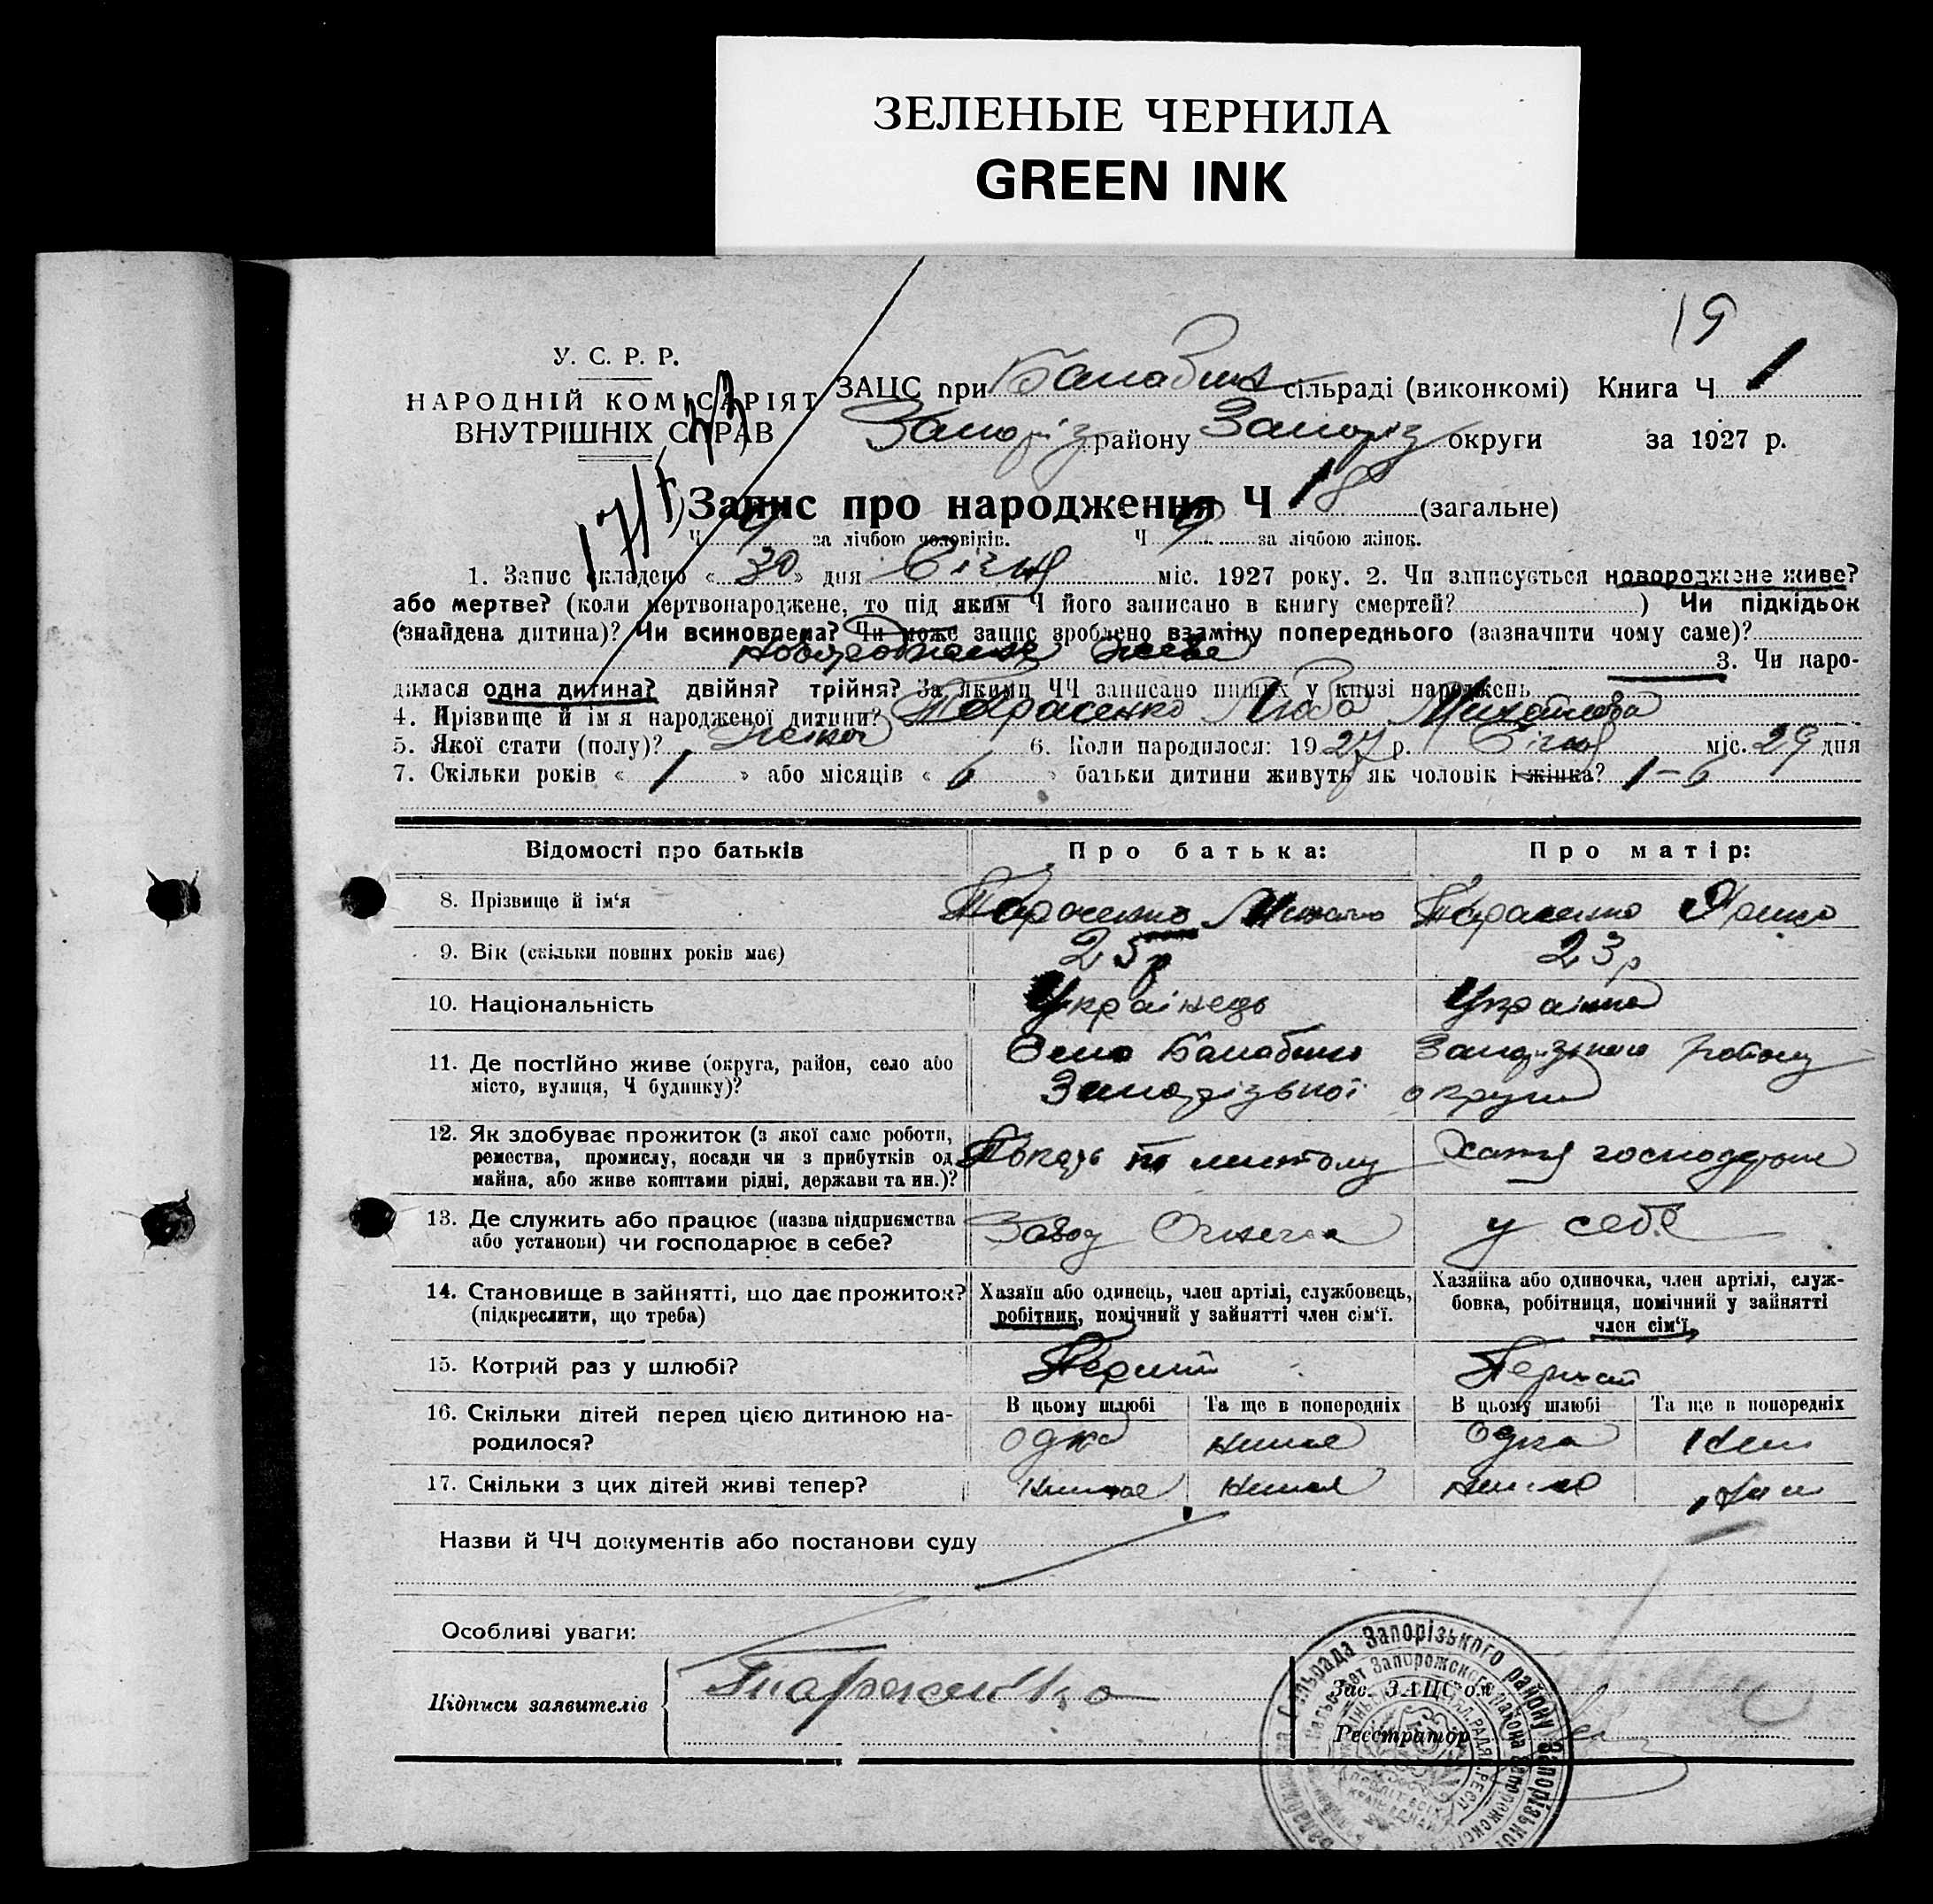 ЗЕЛЕНЫЕ ЧЕРНИЛА
GREEN INK
19
У. С. Р. Р.
НАРОДНІЙ КОМІСАРІЯТ
ВНУТРІШНІХ СПРАВ
ЗАЦС при Балабин сільраді (виконкомі) Книга Ч 1
Запоріз району Запоріз округи за 1927 р.
Запис про народження Ч 18 (загальне)
Ч 9 за лічбою чоловіків. Ч 9 за лічбою жінок.
1. Запис складено « 30 » дня Січня міс. 1927 року. 2. Чи записується новороджене живе?
або мертве? (коли мертвонароджене, то під яким Ч його записано в книгу смертей? ) Чи підкідьок
(знайдена дитина)? Чи всиновлена? Чи може запис зроблено взаміну попереднього (зазначити чому саме)?
новороджене живе 3. Чи наро-
дилася одна дитина? двійня? трійня? За якими ЧЧ записано инших у книзі народжень
4. Прізвище й ім'я народженої дитини? Тарасенко Люба Михайлова
5. Якої стати (полу)? жіноч 6. Коли народилося: 1927 р. Січня міс. 29 дня
7. Скільки років « 1 » або місяців « 6 » батьки дитини живуть як чоловік і жінка? 1-6
Відомості про батьків Про батька: Про матір:
8. Прізвище й ім'я Тарасенко Михайло Тарасенко
9. Вік (скільки повних років має) 25 р 23 р
10. Національність Українець Українка
11. Де постійно живе (округа, район, село або Село Балабино Запорізького району
місто, вулиця, Ч будинку)? Запорізької округи
12. Як здобуває прожиток (з якої саме роботи,
ремества, промислу, посади чи з прибутків од по хатня господарка
майна, або живе коштами рідні, держави та ин.)?
13. Де служить або працює (назва підприємства Завод у себе
або установи) чи господарює в себе?
14. Становище в зайнятті, що дає прожиток? Хазяїн або одинець, член артілі, службовець, Хазяйка або одиночка, член артілі, служ-
(підкреслити, що треба) робітник, помічний у зайнятті член сім'ї. бовка, робітниця, помічний у зайнятті
член сім'ї
15. Котрий раз у шлюбі? Перший Перший
16. Скільки дітей перед цією дитиною на- В цьому шлюбі Та ще в попередніх В цьому шлюбі Та ще в попередніх
родилося? одна немає одна
17. Скільки з цих дітей живі тепер? немає немає немає
Назви й ЧЧ документів або постанови суду
Особливі уваги:
Підписи заявителів Тарасенко
Зав. ЗАЦС'ом
Реєстратор